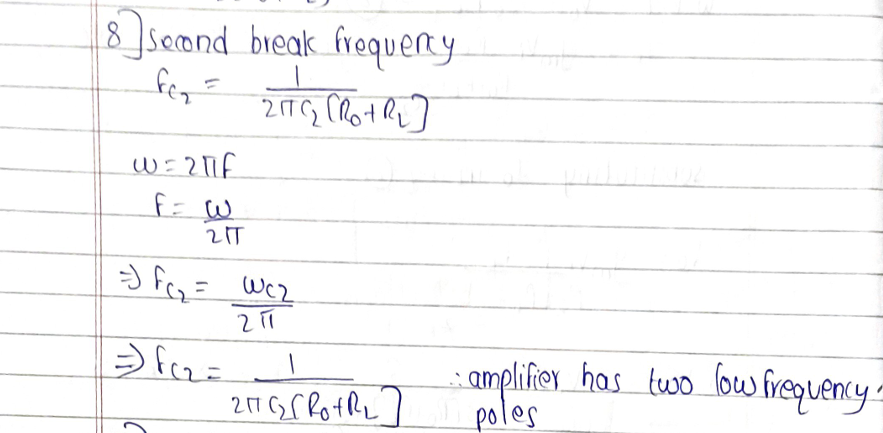 8] Second break frequency
fc₂ = 1 / 2πC₂[R₀+R_L]
ω = 2πf
f = ω / 2π
⇒ fc₂ = ωc2 / 2π
⇒ fc₂ = 1 / 2πC₂[R₀+R_L] ∴ amplifier has two low frequency
poles